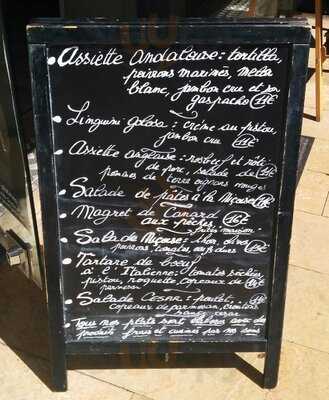 Assiette Andalouse : tortilla,
poivrons marinés, melon
blanc, jambon cru et son
gaspacho 14€
Linguini golosa : crème au pistou,
jambon cru
Assiette anglaise : rosbeef et rôti
de porc, salade de
pommes de terre oignons rouges
Salade de pâtes à la Niçoise
Magret de Canard 16€
aux pêches frites maison
Salade Niçoise : thon, olives,
poivrons, tomates, œufs durs
Tartare de boeuf
à l'Italienne : tomates séchées,
pistou, roquette, copeaux de
parmesan
Salade César : poulet,
copeaux de parmesan, croutons,
sauce césar
Tous nos plats sont élaborés avec des
produits frais et cuisinés par nos soins